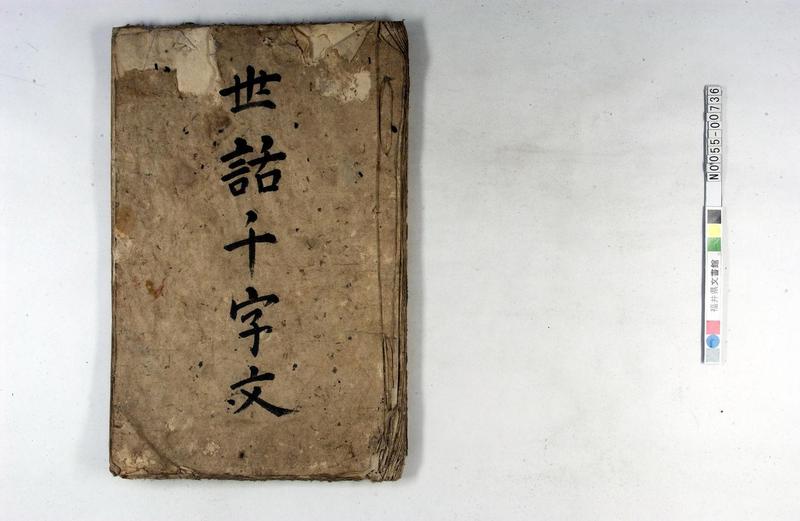 世話千字文
N0055-00736
福井県文書館